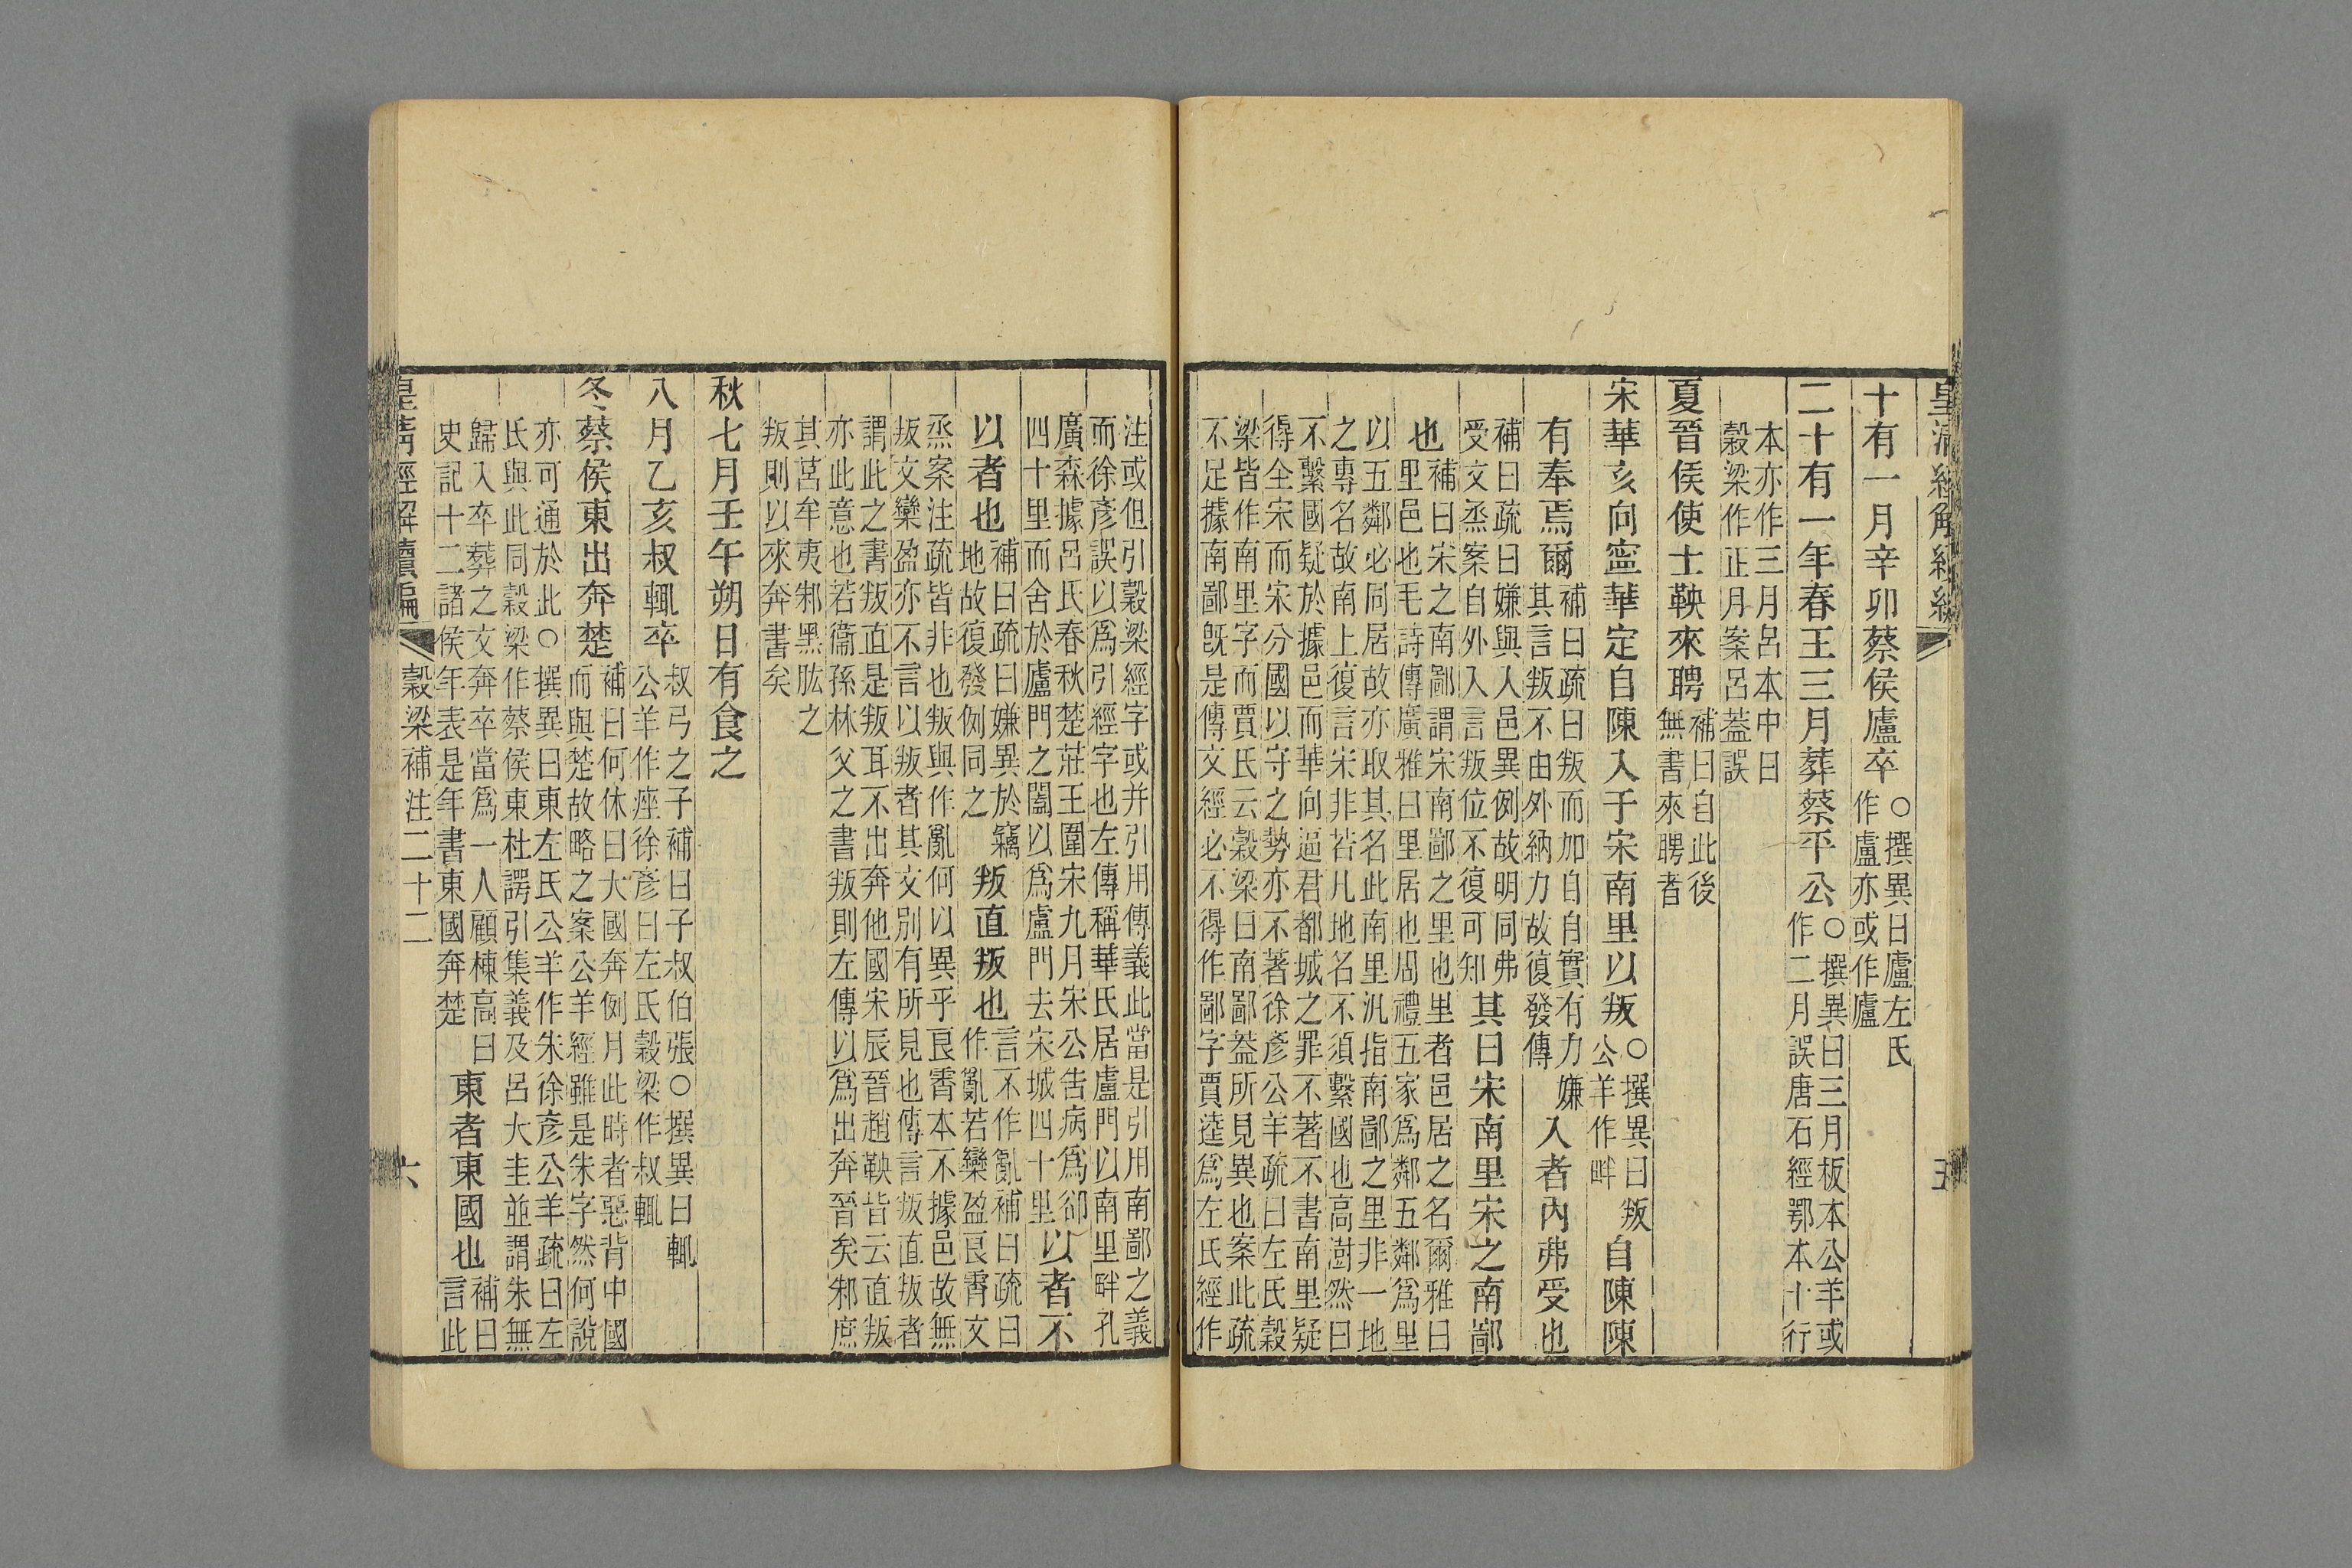 十有一月辛卯蔡侯廬卒○撰異曰廬左氏作廬亦或作廬
二十有一年春王三月葬蔡平公○撰異曰三月板本公羊或作二月誤唐石經鄂本十行
本亦作三月呂本中曰穀梁作正月案呂葢誤
夏晉侯使士鞅來聘補曰自此後無書來聘者
宋華亥向寧華定自陳入于宋南里以叛○撰異曰叛公羊作畔自陳陳
有奉焉爾補曰疏曰叛而加自自實有力嫌其言叛不由外納力故復發傳入者內弗受也
補曰疏曰嫌與入邑異例故明同弗受文烝案自外入言叛位不復可知其曰宋南里宋之南鄙
也補曰宋之南鄙謂宋南鄙之里也里者邑居之名爾雅曰里邑也毛詩傳廣雅曰里居也周禮五家爲鄰五鄰爲里
以五鄰必同居故亦取其名此南里汎指南鄙之里非一地之專名故南上復言宋非若凡地名不須繫國也高澍然曰
不繫國疑於據邑而華向逼君都城之罪不著不書南里疑得全宋而宋分國以守之勢亦不著徐彥公羊疏曰左氏穀
梁皆作南里字而賈氏云穀梁曰南鄙葢所見異也案此疏不足據南鄙旣是傳文經必不得作鄙字賈逵爲左氏經作
注或但引穀梁經字或并引用傳義此當是引用南鄙之義而徐彥誤以爲引經字也左傳稱華氏居盧門以南里畔孔
廣森據呂氏春秋楚莊王圍宋九月宋公告病爲卻四十里而舍於盧門之闔以爲盧門去宋城四十里以者不
以者也補曰疏曰嫌異於竊地故復發例同之叛直叛也言不作亂補曰疏曰作亂若欒盈良霄文
烝案注疏皆非也叛與作亂何以異乎良霄本不據邑故無叛文欒盈亦不言以叛者其文別有所見也傳言叛直叛者
謂此之書叛直是叛耳不出奔他國宋辰晉趙鞅皆云直叛亦此意也若衞孫林父之書叛則左傳以爲出奔晉矣邾庶
其莒牟夷邾黑肱之叛則以來奔書矣
秋七月壬午朔日有食之
八月乙亥叔輒卒叔弓之子補曰子叔伯張○撰異曰輒公羊作痤徐彥曰左氏穀梁作叔輒
冬蔡侯東出奔楚補曰何休曰大國奔例月此時者惡背中國而與楚故略之案公羊經雖是朱字然何說
亦可通於此○撰異曰東左氏公羊作朱徐彥公羊疏曰左氏與此同穀梁作蔡侯東杜諤引集義及呂大圭並謂朱無
歸入卒葬之文奔卒當爲一人顧棟高曰史記十二諸侯年表是年書東國奔楚東者東國也補曰言此
穀梁補注二十二
六